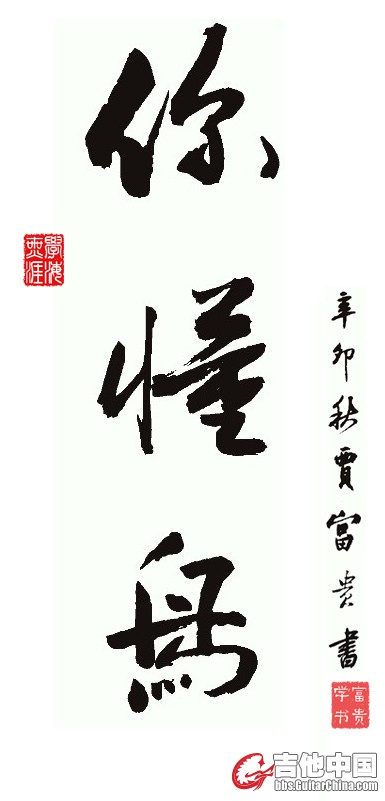 你懂鳥
學海
無涯
辛卯秋賈富贵書
富贵
学书
吉他中国
bbs.GuitarChina.com